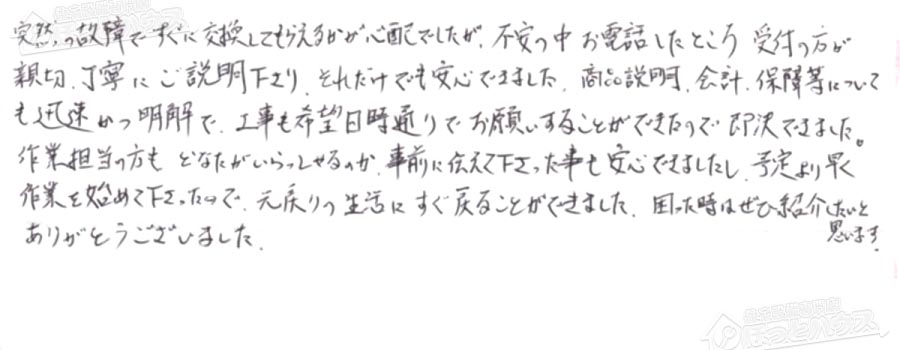 突然の故障ですぐに交換してもらえるかが心配でしたが、不安の中お電話したところ 受付の方が
親切、丁寧にご説明下さり、それだけでも安心できました。商品説明、会計、保障等について
も迅速かつ明解で、工事も希望日時通りでお願いすることができたので即決できました。
作業担当の方も どなたがいらっしゃるのか、事前に伝えて下さった事も安心できましたし、予定より早く
作業を始めて下さったので、元戻りの生活にすぐ戻ることができました。困った時はぜひ紹介したいと
思います。
ありがとうございました。
ほっとハウス